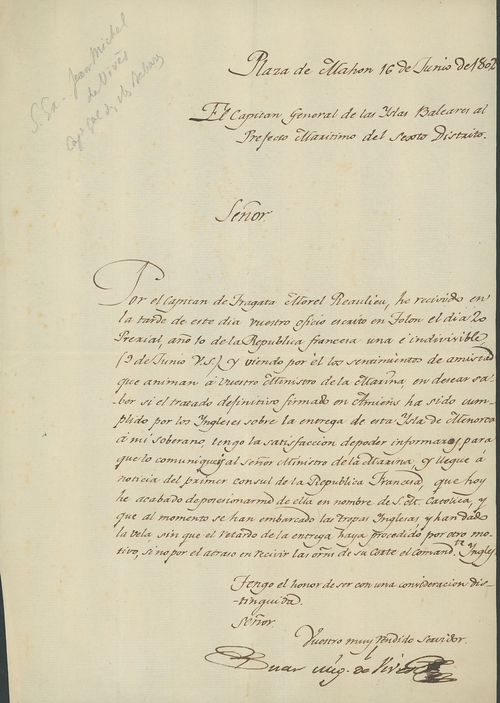 S. Ex. Juan Michel
de Vivés
Cap. Gal. des Is. Baleares
Plaza de Mahon 16 de Junio de 1802
El Capitan General de las Yslas Baleares al
Prefecto Maritimo del Sexto Distrito.
Señor
Por el Capitan de Fragata Morel Beaulieu, he recivido en
la tarde de este dia vuestro oficio escrito en Tolon el dia 20
Prexial, año 10 de la Republica francesa una é indivisible
(9 de Junio V.S.) y viendo por él los sentimientos de amistad
que animan á vuestro Ministro de la Marina, en desear sa-
ber si el tratado definitivo firmado en Amiens ha sido cum-
plido por los Yngleses sobre la entrega de esta Ysla de Menorca
á mi soberano, tengo la satisfaccion de poder informaros, para
que lo comuniqueis al Señor Ministro de la Marina, y llegue á
noticia del primer consul de la Republica Francesa, que hoy
he acabado de posesionarme de ella en nombre de S. M. Catolica, y
que al momento se han embarcado las tropas Ynglesas, y han dado
la vela, sin que el retardo de la entrega haya procedido por otro mo-
tivo, si no por el atraso en recivir las orns de su Corte el comandte Yngles.
Tengo el honor de ser con una consideracion dis-
-tinguida.
Señor.
Vuestro muy rendido servidor.
Juan Mig. de Vives